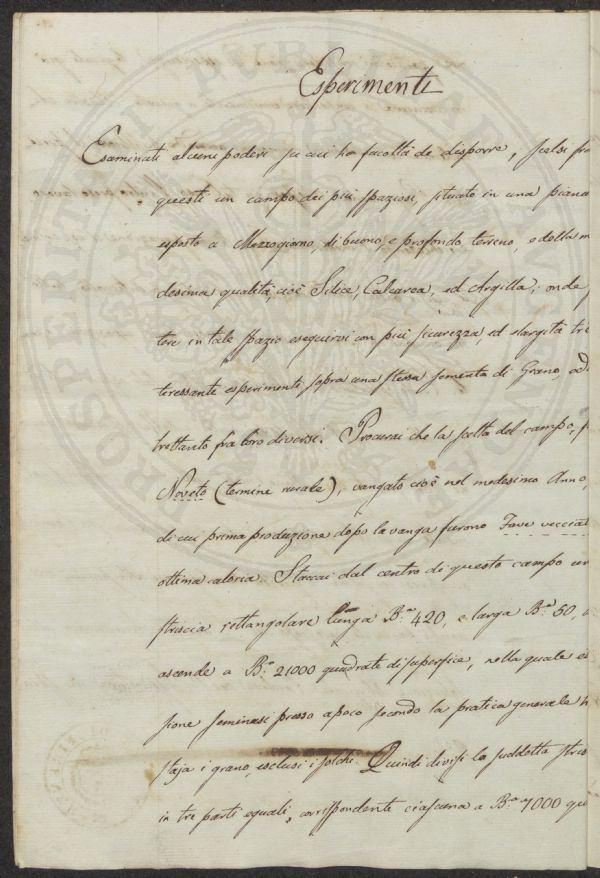 Esperimenti
Esaminati alcuni poderi su cui ho facoltà di disporre, scelsi fra
questi un campo dei più spaziosi, situato in una pianu
esposto a Mezzogiorno, di buono, e profondo terreno, e della m
desima qualità, cioè Silice, Calcarea, ed Argilla; onde p
tere in tale spazio eseguirvi con più sicurezza, ed elargità tre
teressante esperimenti sopra una stessa sementa di Grano, ad
trettanto fra loro diversi. Procurai che la scelta del campo, f
Noveto (termine rurale), vangato cioè nel medesimo Anno,
di cui prima produzione dopo la vanga furono Fave vecciat
ottima caloria. Staccai dal centro di questo campo un
striscia rettangolare lunga B.ª 420, e larga B.ª 50, c
ascende a B.ª 21000 quadrate di superfice, nella quale es
sione seminasi presso a poco secondo la pratica generale
staja i grano, esclusi i solchi. Quindi divisi la suddetta stris
in tre parti eguali, corrispondente ciascuna a B.ª 7000 qu